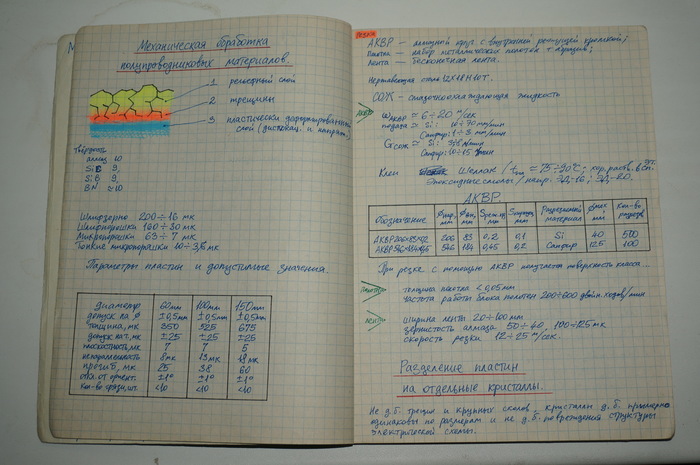 Механическая обработка
полупроводниковых материалов.
1 рельефный слой
2 трещины
3 пластически деформированный
слой (дислокац. и напряж.)
Твёрдость
алмаз 10
SiC 9,
SiB 9,
BN ≈10
Шлифзерно 200÷16 мк
Шлифпорошки 160÷30 мк
Микропорошки 63÷7 мк
Тонкие микропорошки 10÷3/5 мк
Параметры пластин и допустимые значения.
диаметр 60мм 100мм 150мм
допуск на ø ±0,5мм ±0,5мм ±0,5мм
толщина, мк 350 525 675
допуск на т, мк ±25 ±25 ±25
плоскостность, мк 7 7 5
непараллельность 8мк 13мк мк
прогиб, мк 25 38 60
откл. от ориент. ±1° ±1° ±1°
кол-во <10 <10 <10
РЕЗКА
АКВР — алмазный круг с внутренней режущей кромкой;
Полотна — набор металлических полотен + абразив;
Лента — бесконечная лента.
Нержавеющая сталь 12Х18Н10Т.
СОЖ — смазочноохлаждающая жидкость
АКВР
ωАКВР ≈ 6÷20 м/сек
подача ≈ Si: 10÷70 мм/мин
Сапфир: 1÷3 мм/мин
Gсож ≈ Si: л/мин
Сапфир: 10÷15 л/мин
Клеи Шеллак / tпл = 75÷90°C; хор. раств. в сп.
Эпоксидные смолы / напр. ЭД-16; ЭД-20.
АКВР.
Обозначение øнар. мм øвн. мм Sреж.кр мм Sкорпуса мм Разрезаемый материал øмак мм Кол-во разрезов
АКВР 206×83×0,2 206 83 0,2 0,1 Si 40 500
АКВР 546×184×0,45 546 184 0,45 0,2 Сапфир 125 100
При резке с помощью АКВР получается поверхность класса...
полотна
толщина полотна < 0,05мм
частота работы блока полотен 200÷600 двойн. ходов/мин
лента
ширина ленты 20÷100мм
зернистость алмаза 50÷40, 100÷125мк
скорость резки 12÷25 м/сек.
Разделение пластин
на отдельные кристаллы.
Не д.б. трещин и крупных сколов, кристаллы д.б. примерно
одинаковы по размерам и не д.б. повреждений структуры
электрической схемы.